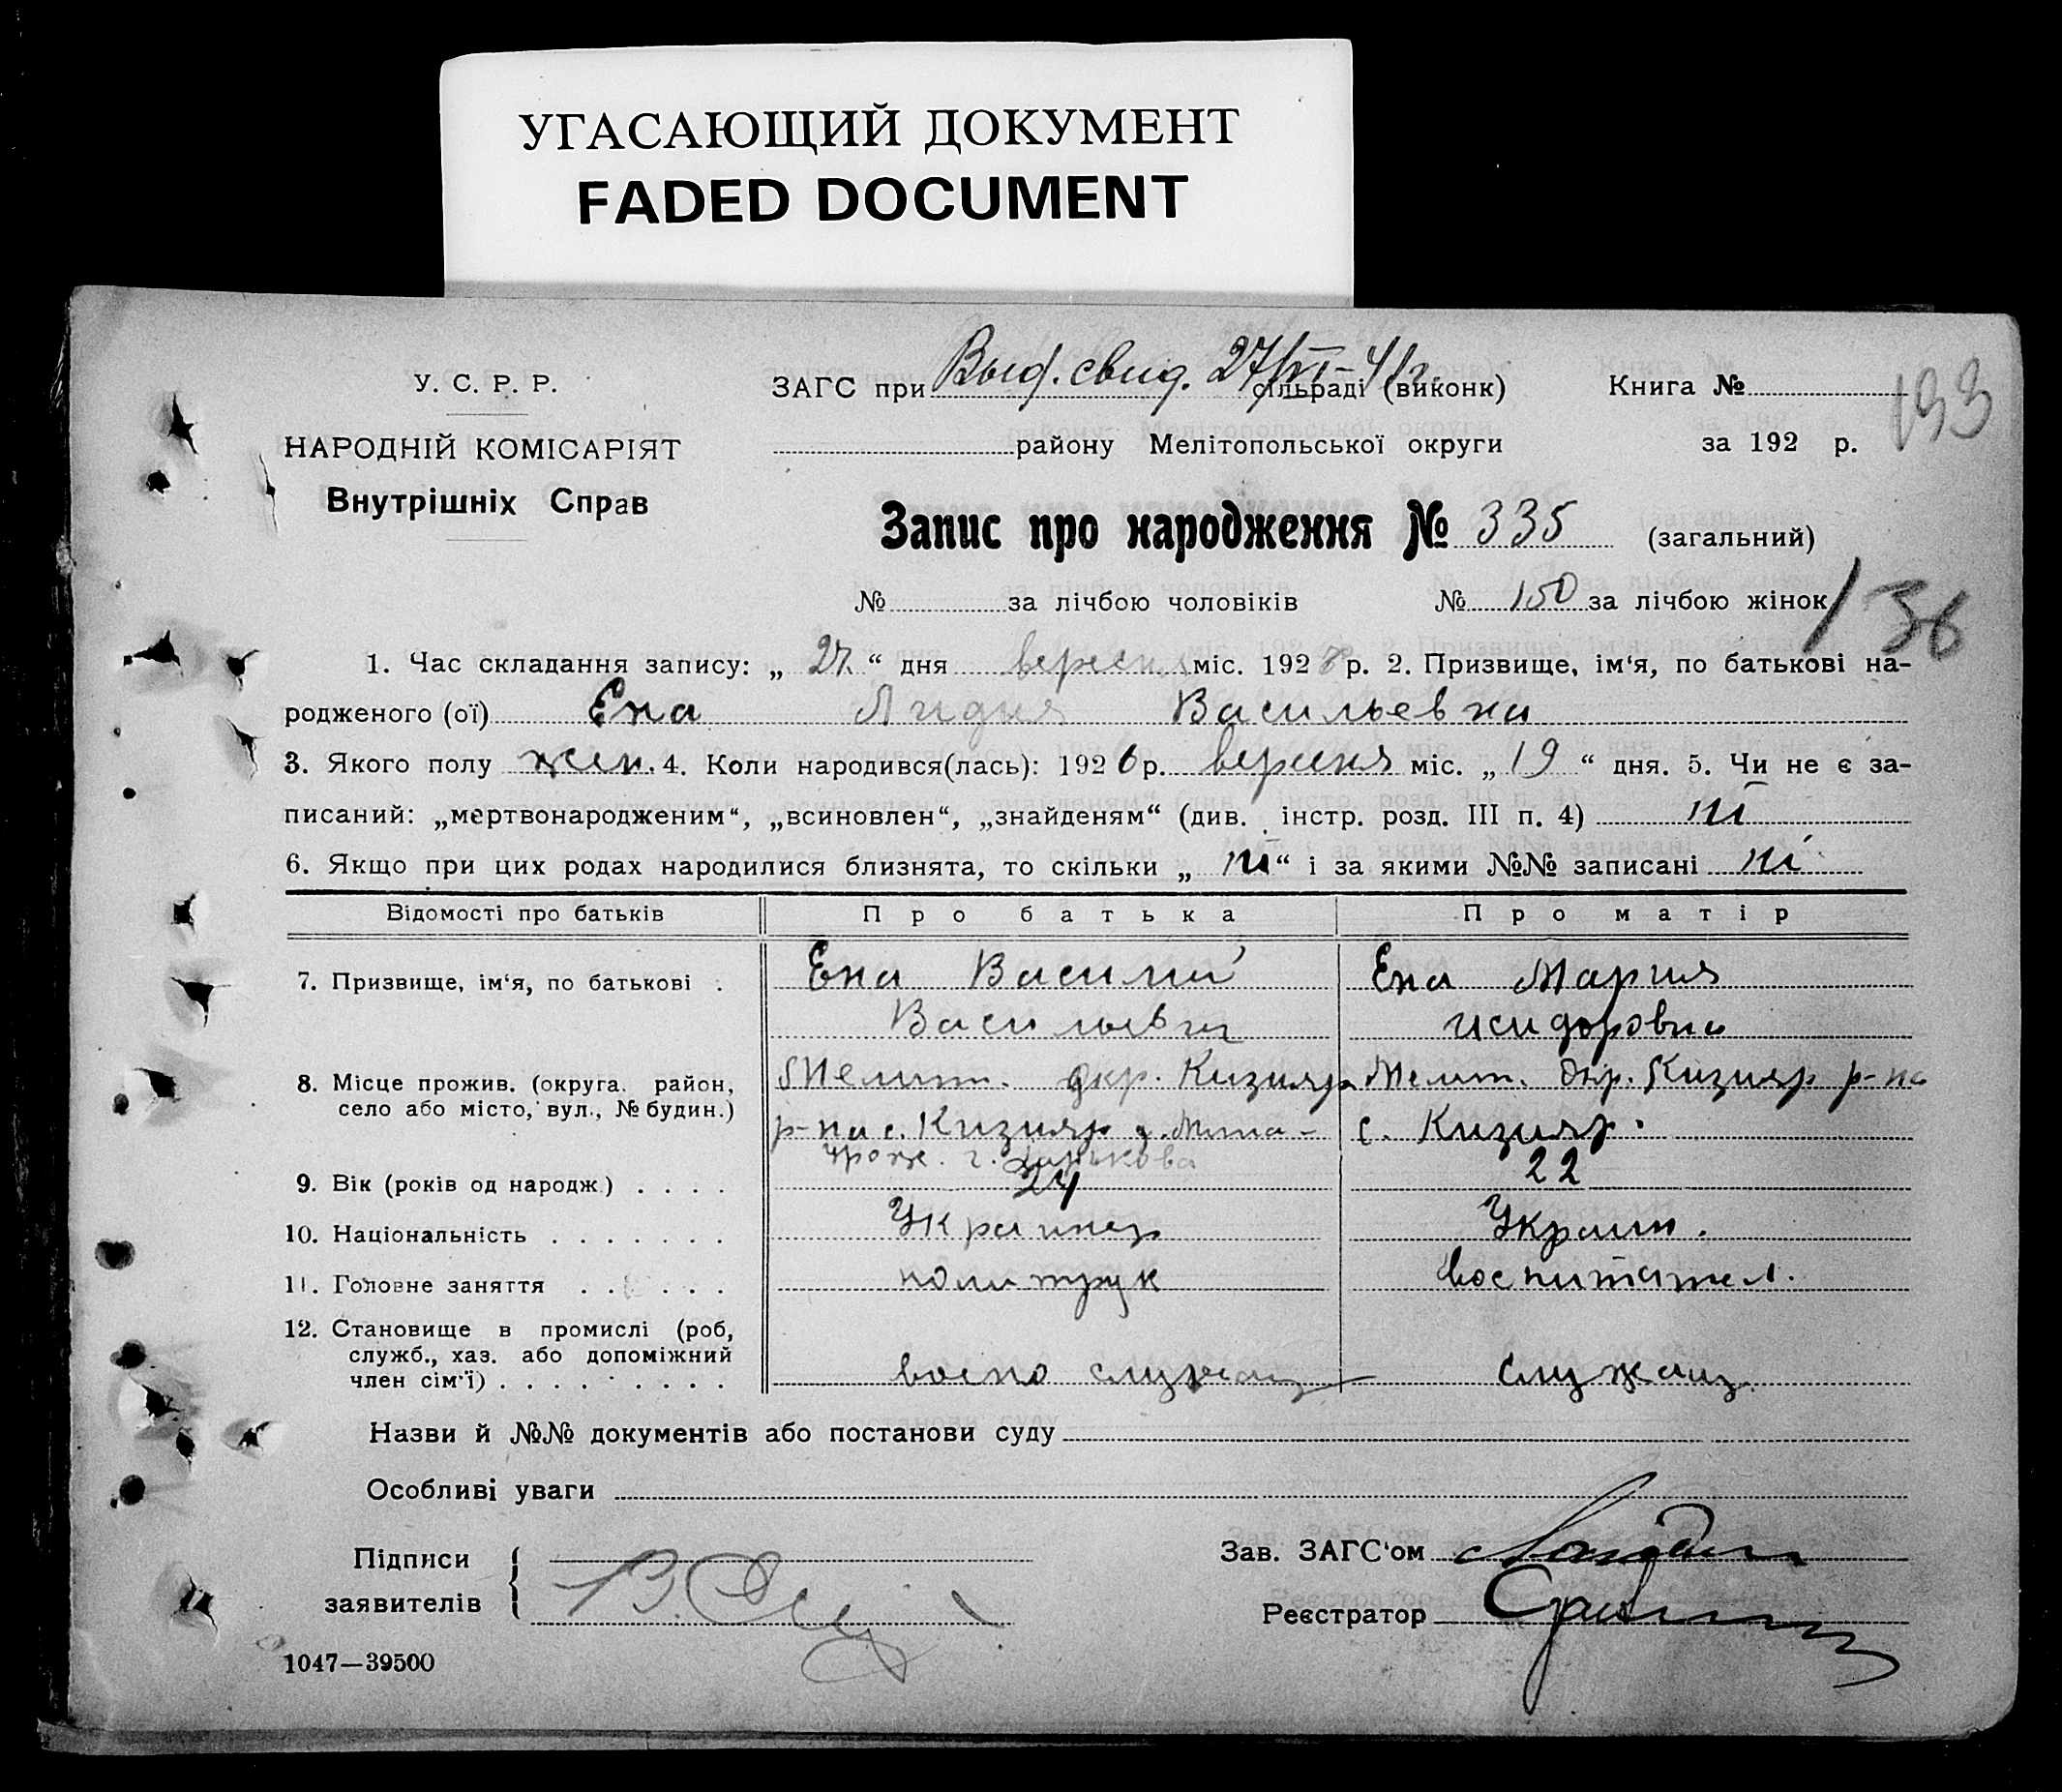 УГАСАЮЩИЙ ДОКУМЕНТ
FADED DOCUMENT
У. С. Р. Р.
НАРОДНІЙ КОМІСАРІЯТ
Внутрішніх Справ
ЗАГС при Выд. свид. 27/VI-41г. сільраді (виконк)
Книга №
193
району Мелітопольської округи
за 192 р.
Запис про народження № 335 (загальний)
№ за лічбою чоловіків № 150 за лічбою жінок
136
1. Час складання запису: „ 27 “ дня вересн. міс. 192 р. 2. Призвище, ім‘я, по батькові на-
родженого (ої) Ена Лидия Васильевна
3. Якого полу жен. 4. Коли народився(лась): 1926 р. вересня міс. „ 19 “ дня. 5. Чи не є за-
писаний: „мертвонародженим“, „всиновлен“, „знайденям“ (див. інстр. розд. III п. 4) ні
6. Якщо при цих родах народилися близнята, то скільки „ ні “ і за якими №№ записані ні
Відомості про батьків Про батька Про матір
7. Призвище, ім‘я, по батькові . Ена Василий Ена Мария
Васильевич Исидоровна
8. Місце прожив. (округа. район, село або місто, вул., № будин.)
Мелит. окр. Кизияр Мелит. Окр. Кизияр р-на
р-на с. Кизияр с. Кизияр.
урож. г. Харькова
9. Вік (років од народж.) . . . . 24 22
10. Національність . . . . . . . Украинец Украин.
11. Головне заняття . . . . . . политрук воспитател.
12. Становище в промислі (роб,
служб., хаз. або допоміжний
член сім‘ї) . . . . . . . . . военно служащ служащ.
Назви й №№ документів або постанови суду
Особливі уваги
Підписи
заявителів
Зав. ЗАГС‘ом
Реєстратор
1047—39500